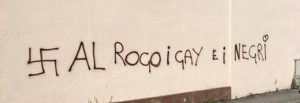 卐 AL ROGO i GAY E i NEGRI